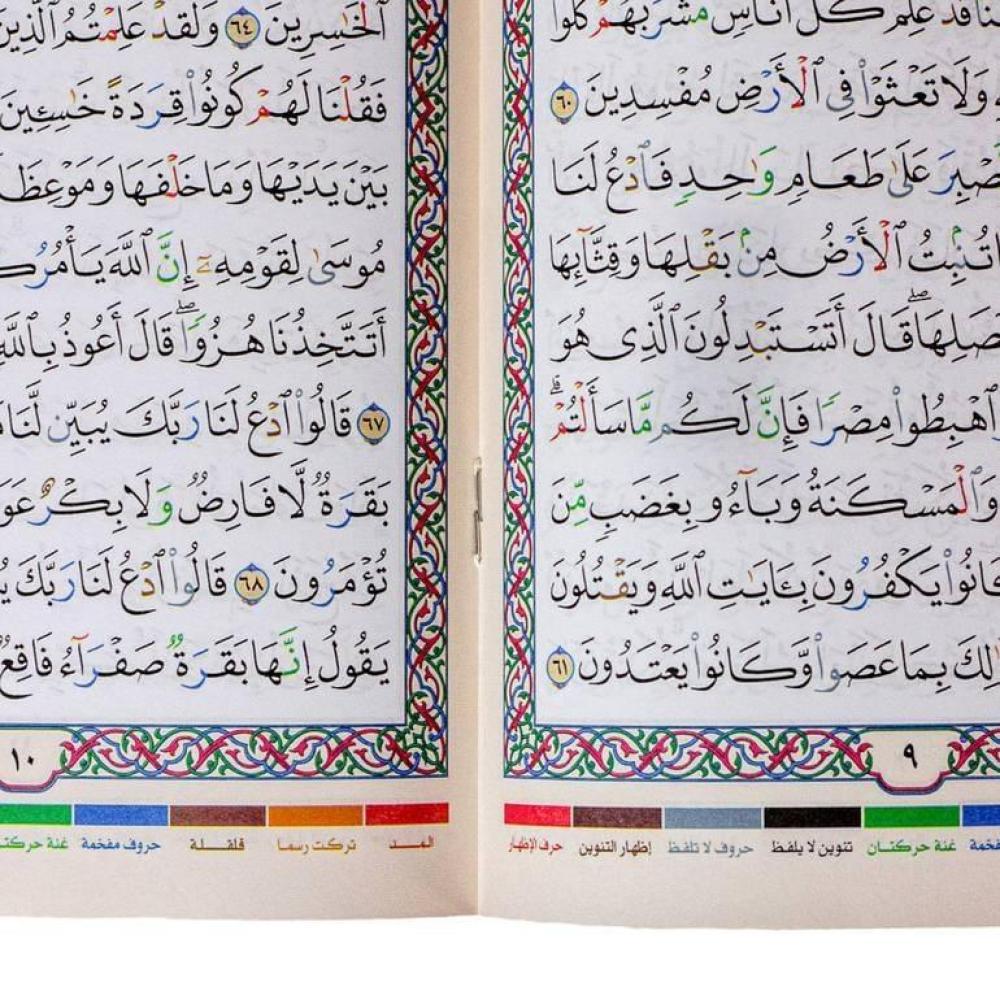 قَدْ عَلِمَ كُلُّ أُنَاسٍ مَّشْرَبَهُمْ كُلُوا
وَلَا تَعْثَوْا۟ فِى ٱلْأَرْضِ مُفْسِدِينَ ٦٠
عَلَىٰ طَعَامٍ وَٰحِدٍ فَٱدْعُ لَنَا
تُنۢبِتُ ٱلْأَرْضُ مِنۢ بَقْلِهَا وَقِثَّآئِهَا
قَالَ أَتَسْتَبْدِلُونَ ٱلَّذِى هُوَ
ٱهْبِطُوا۟ مِصْرًا فَإِنَّ لَكُم مَّا سَأَلْتُمْ ۗ
وَٱلْمَسْكَنَةُ وَبَآءُو بِغَضَبٍ مِّنَ
كَانُوا۟ يَكْفُرُونَ بِـَٔايَـٰتِ ٱللَّهِ وَيَقْتُلُونَ
بِمَا عَصَوا۟ وَّكَانُوا۟ يَعْتَدُونَ ٦١
٩
حرف الإظهار إظهار التنوين حروف لا تلفظ تنوين لا يلفظ غنة حركتان
ٱلْخَـٰسِرِينَ ٦٤ وَلَقَدْ عَلِمْتُمُ ٱلَّذِينَ
فَقُلْنَا لَهُمْ كُونُوا۟ قِرَدَةً خَـٰسِـِٔينَ
بَيْنَ يَدَيْهَا وَمَا خَلْفَهَا وَمَوْعِظَ
مُوسَىٰ لِقَوْمِهِۦٓ إِنَّ ٱللَّهَ يَأْمُرُكُ
أَتَتَّخِذُنَا هُزُوًا ۖ قَالَ أَعُوذُ بِٱللَّهِ
٦٧ قَالُوا۟ ٱدْعُ لَنَا رَبَّكَ يُبَيِّن لَّنَا
بَقَرَةٌ لَّا فَارِضٌ وَلَا بِكْرٌ عَوَ
تُؤْمَرُونَ ٦٨ قَالُوا۟ ٱدْعُ لَنَا رَبَّكَ
يَقُولُ إِنَّهَا بَقَرَةٌ صَفْرَآءُ فَاقِعٌ
١٠
المــد تركت رسما قلقـلة حروف مفخمة غنة